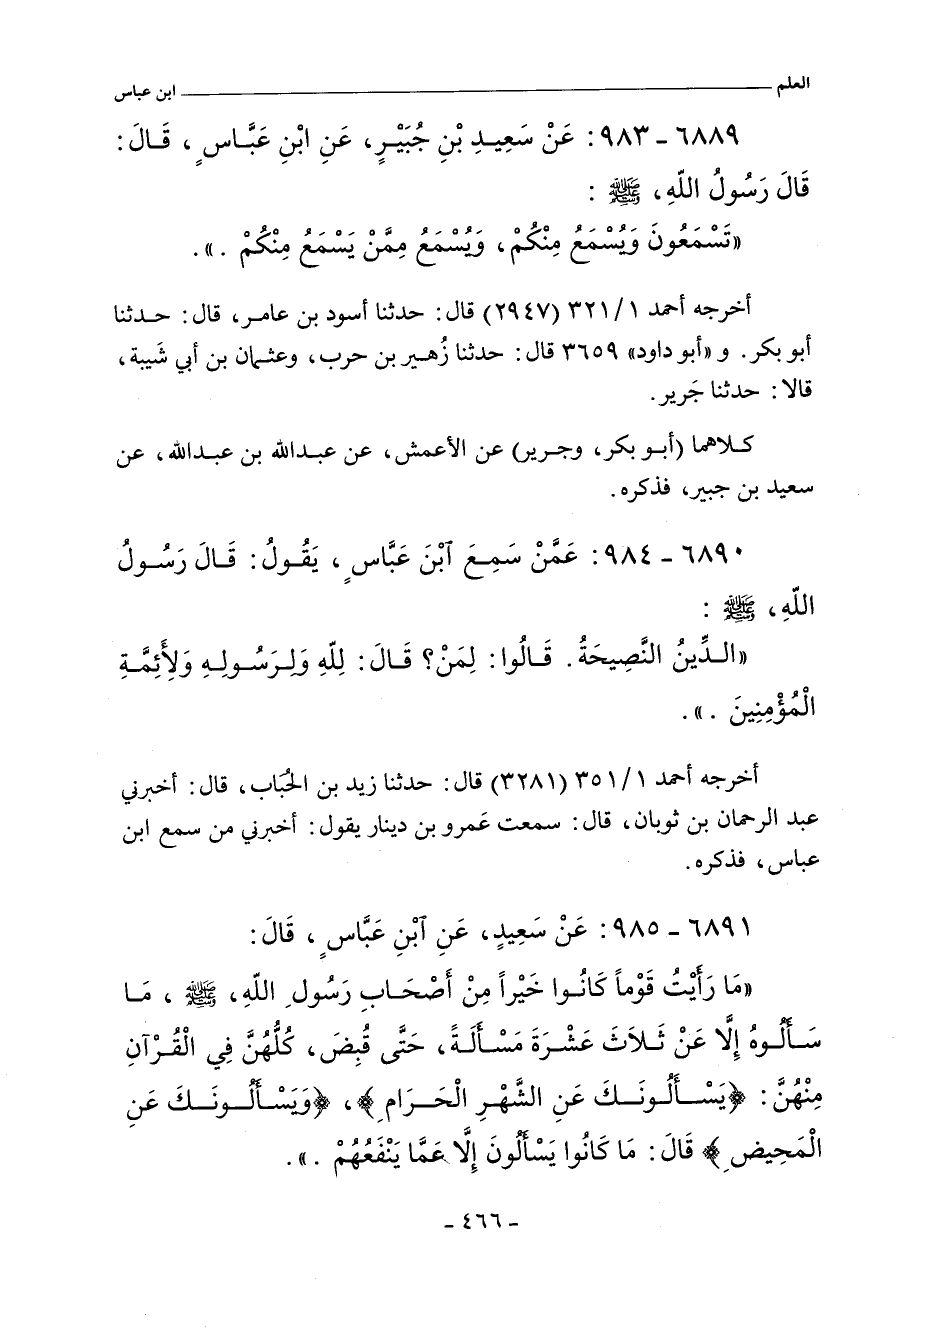 العلم ــــــــــ ابن عباس
٦٨٨٩ ـ ٩٨٣ : عَنْ سَعِيدِ بْنِ جُبَيْرٍ، عَنِ ابْنِ عَبَّاسٍ ، قَالَ :
قَالَ رَسُولُ اللّهِ، ﷺ :
«تَسْمَعُونَ وَيُسْمَعُ مِنْكُمْ، وَيُسْمَعُ مِمَّنْ يَسْمَعُ مِنْكُمْ .».
أخرجه أحمد ٣٢١/١ (٢٩٤٧) قال: حدثنا أسود بن عامر، قال: حدثنا
أبو بكر. و «أبو داود» ٣٦٥٩ قال: حدثنا زُهير بن حرب، وعثمان بن أبي شَيبة،
قالا: حدثنا جَرير.
كلاهما (أبو بكر، وجرير) عن الأعمش، عن عبدالله بن عبدالله، عن
سعيد بن جبير، فذكره.
٦٨٩٠ ـ ٩٨٤ : عَمَّنْ سَمِعَ ٱبْنَ عَبَّاسٍ ، يَقُولُ: قَالَ رَسُولُ
اللّهِ، ﷺ :
«الدِّينُ النَّصِيحَةُ. قَالُوا: لِمَنْ؟ قَالَ: لِلّهِ وَلِرَسُولِهِ وَلِأَئِمَّةِ
الْمُؤْمِنِينَ .».
أخرجه أحمد ٣٥١/١ (٣٢٨١) قال: حدثنا زيد بن الحُبَاب، قال: أخبرني
عبد الرحمان بن ثوبان، قال: سمعت عَمرو بن دينار يقول: أخبرني من سمع ابن
عباس، فذكره.
٦٨٩١ ـ ٩٨٥ : عَنْ سَعِيدٍ، عَنِ ٱبْنِ عَبَّاسٍ ، قَالَ:
«مَا رَأَيْتُ قَوْماً كَانُوا خَيْراً مِنْ أَصْحَابِ رَسُولِ اللّهِ، ﷺ ، مَا
سَأَلُوهُ إِلَّا عَنْ ثَلَاثَ عَشْرَةَ مَسْأَلَةً، حَتَّى قُبِضَ، كُلُّهُنَّ فِي الْقُرْآنِ
مِنْهُنَّ: ﴿يَسْأَلُونَكَ عَنِ الشَّهْرِ الْحَرَامِ﴾، ﴿وَيَسْأَلُونَكَ عَنِ
الْمَحِيضِ﴾ قَالَ: مَا كَانُوا يَسْأَلُونَ إِلَّا عَمَّا يَنْفَعُهُمْ .».
ـ ٤٦٦ ـ